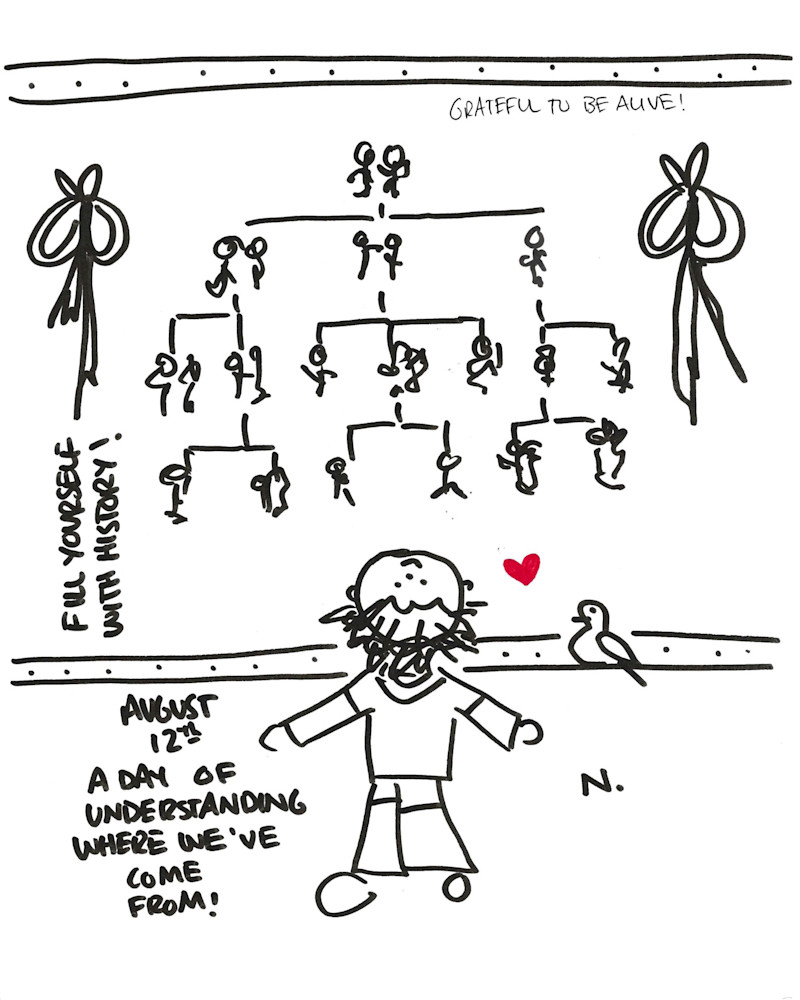 GRATEFUL TO BE ALIVE!
FILL YOURSELF
WITH HISTORY!
AUGUST
12TH
A DAY OF
UNDERSTANDING
WHERE WE'VE
COME
FROM!
N.